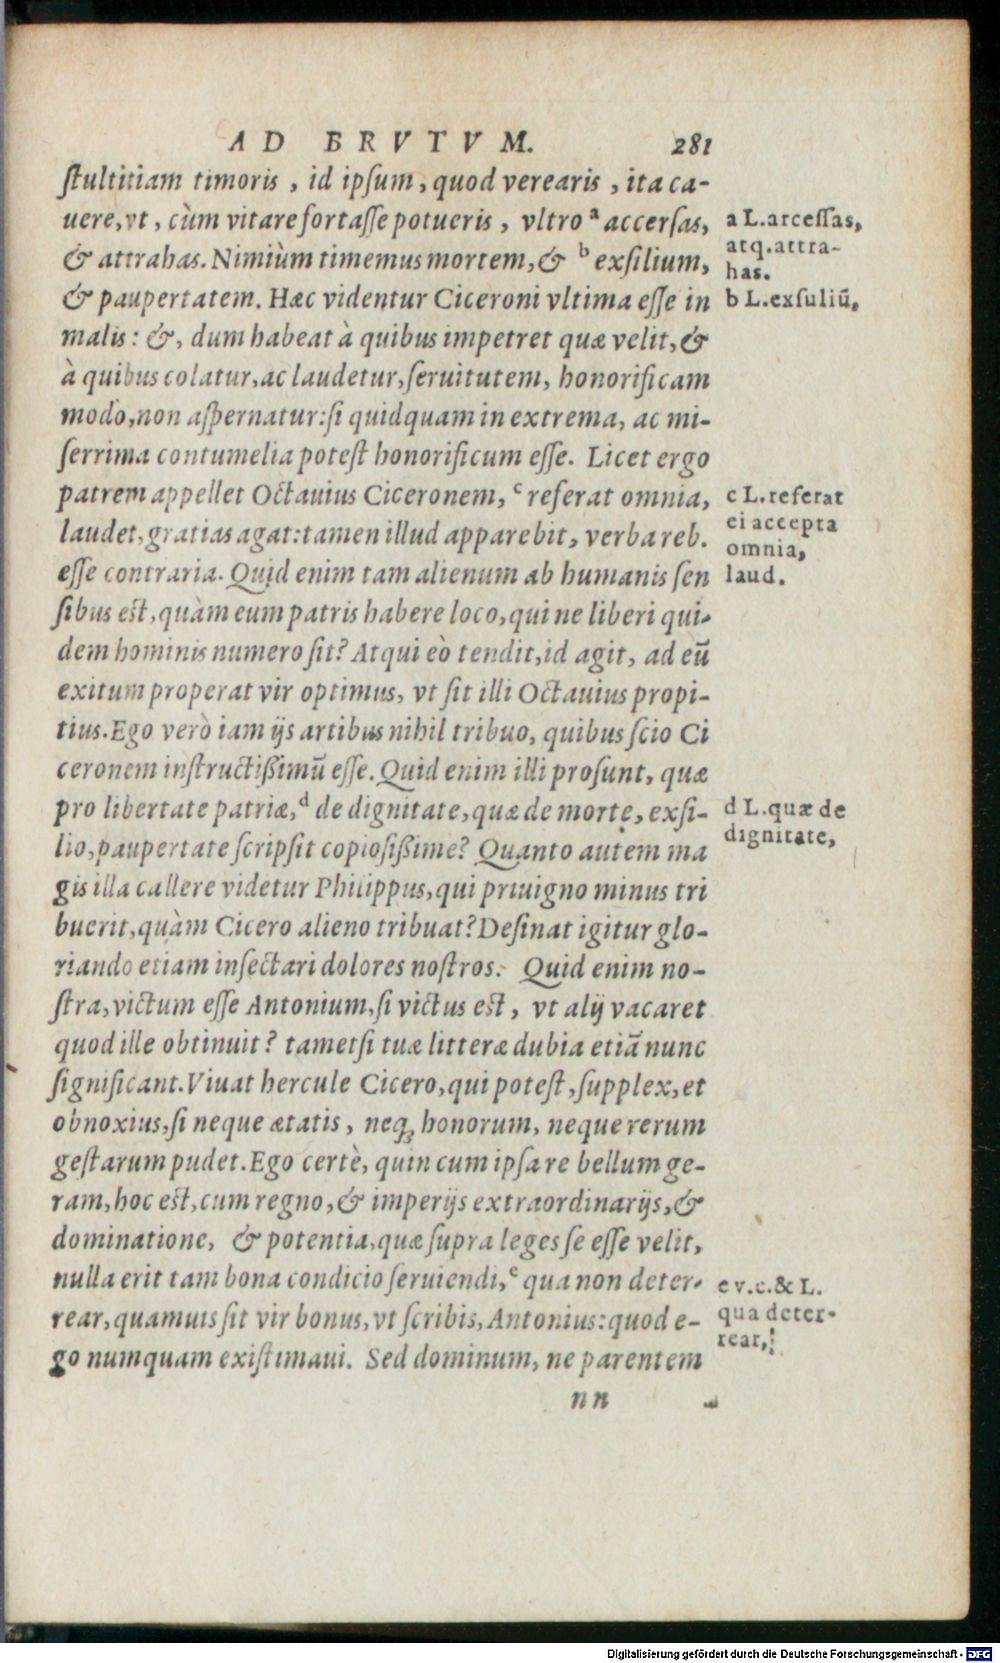 AD BRVTVM. 281
ſtultitiam timoris, id ipſum, quod verearis, ita ca-
uere, vt, cùm vitare fortaſſe potueris, vltro ᵃ accerſas,
& attrahas. Nimiùm timemus mortem, & ᵇ exſilium,
& paupertatem. Hæc videntur Ciceroni vltima eſſe in
malis: &, dum habeat à quibus impetret quæ velit, &
à quibus colatur, ac laudetur, ſeruitutem, honorificam
modò, non aſpernatur: ſi quidquam in extrema, ac mi-
ſerrima contumelia poteſt honorificum eſſe. Licet ergo
patrem appellet Octauius Ciceronem, ᶜ referat omnia,
laudet, gratias agat: tamen illud apparebit, verba reb.
eſſe contraria. Quid enim tam alienum ab humanis ſen
ſibus eſt, quàm eum patris habere loco, qui ne liberi qui-
dem hominis numero ſit? Atqui eò tendit, id agit, ad eū
exitum properat vir optimus, vt ſit illi Octauius propi-
tius. Ego verò iam ijs artibus nihil tribuo, quibus ſcio Ci
ceronem inſtructißimū eſſe. Quid enim illi proſunt, quæ
pro libertate patriæ, ᵈ de dignitate, quæ de morte, exſi-
lio, paupertate ſcripſit copioſißime? Quanto autem ma
gis illa callere videtur Philippus, qui priuigno minus tri
buerit, quàm Cicero alieno tribuat? Deſinat igitur glo-
riando etiam inſectari dolores noſtros. Quid enim no-
ſtra, victum eſſe Antonium, ſi victus eſt, vt alij vacaret
quod ille obtinuit? tametſi tuæ litteræ dubia etiā nunc
ſignificant. Viuat hercule Cicero, qui poteſt, ſupplex, et
obnoxius, ſi neque ætatis, neq; honorum, neque rerum
geſtarum pudet. Ego certè, quin cum ipſa re bellum ge-
ram, hoc eſt, cum regno, & imperijs extraordinarijs, &
dominatione, & potentia, quæ ſupra leges ſe eſſe velit,
nulla erit tam bona condicio ſeruiendi, ᵉ qua non deter-
rear, quamuis ſit vir bonus, vt ſcribis, Antonius: quod e-
go numquam exiſtimaui. Sed dominum, ne parentem
nn
a L. arceſſas,
atq. attra-
has.
b L. exſuliū,
c L. referat
ei accepta
omnia,
laud.
d L. quæ de
dignitate,
e v. c. & L.
qua deter-
rear,
Digitalisierung gefördert durch die Deutsche Forschungsgemeinschaft - DFG